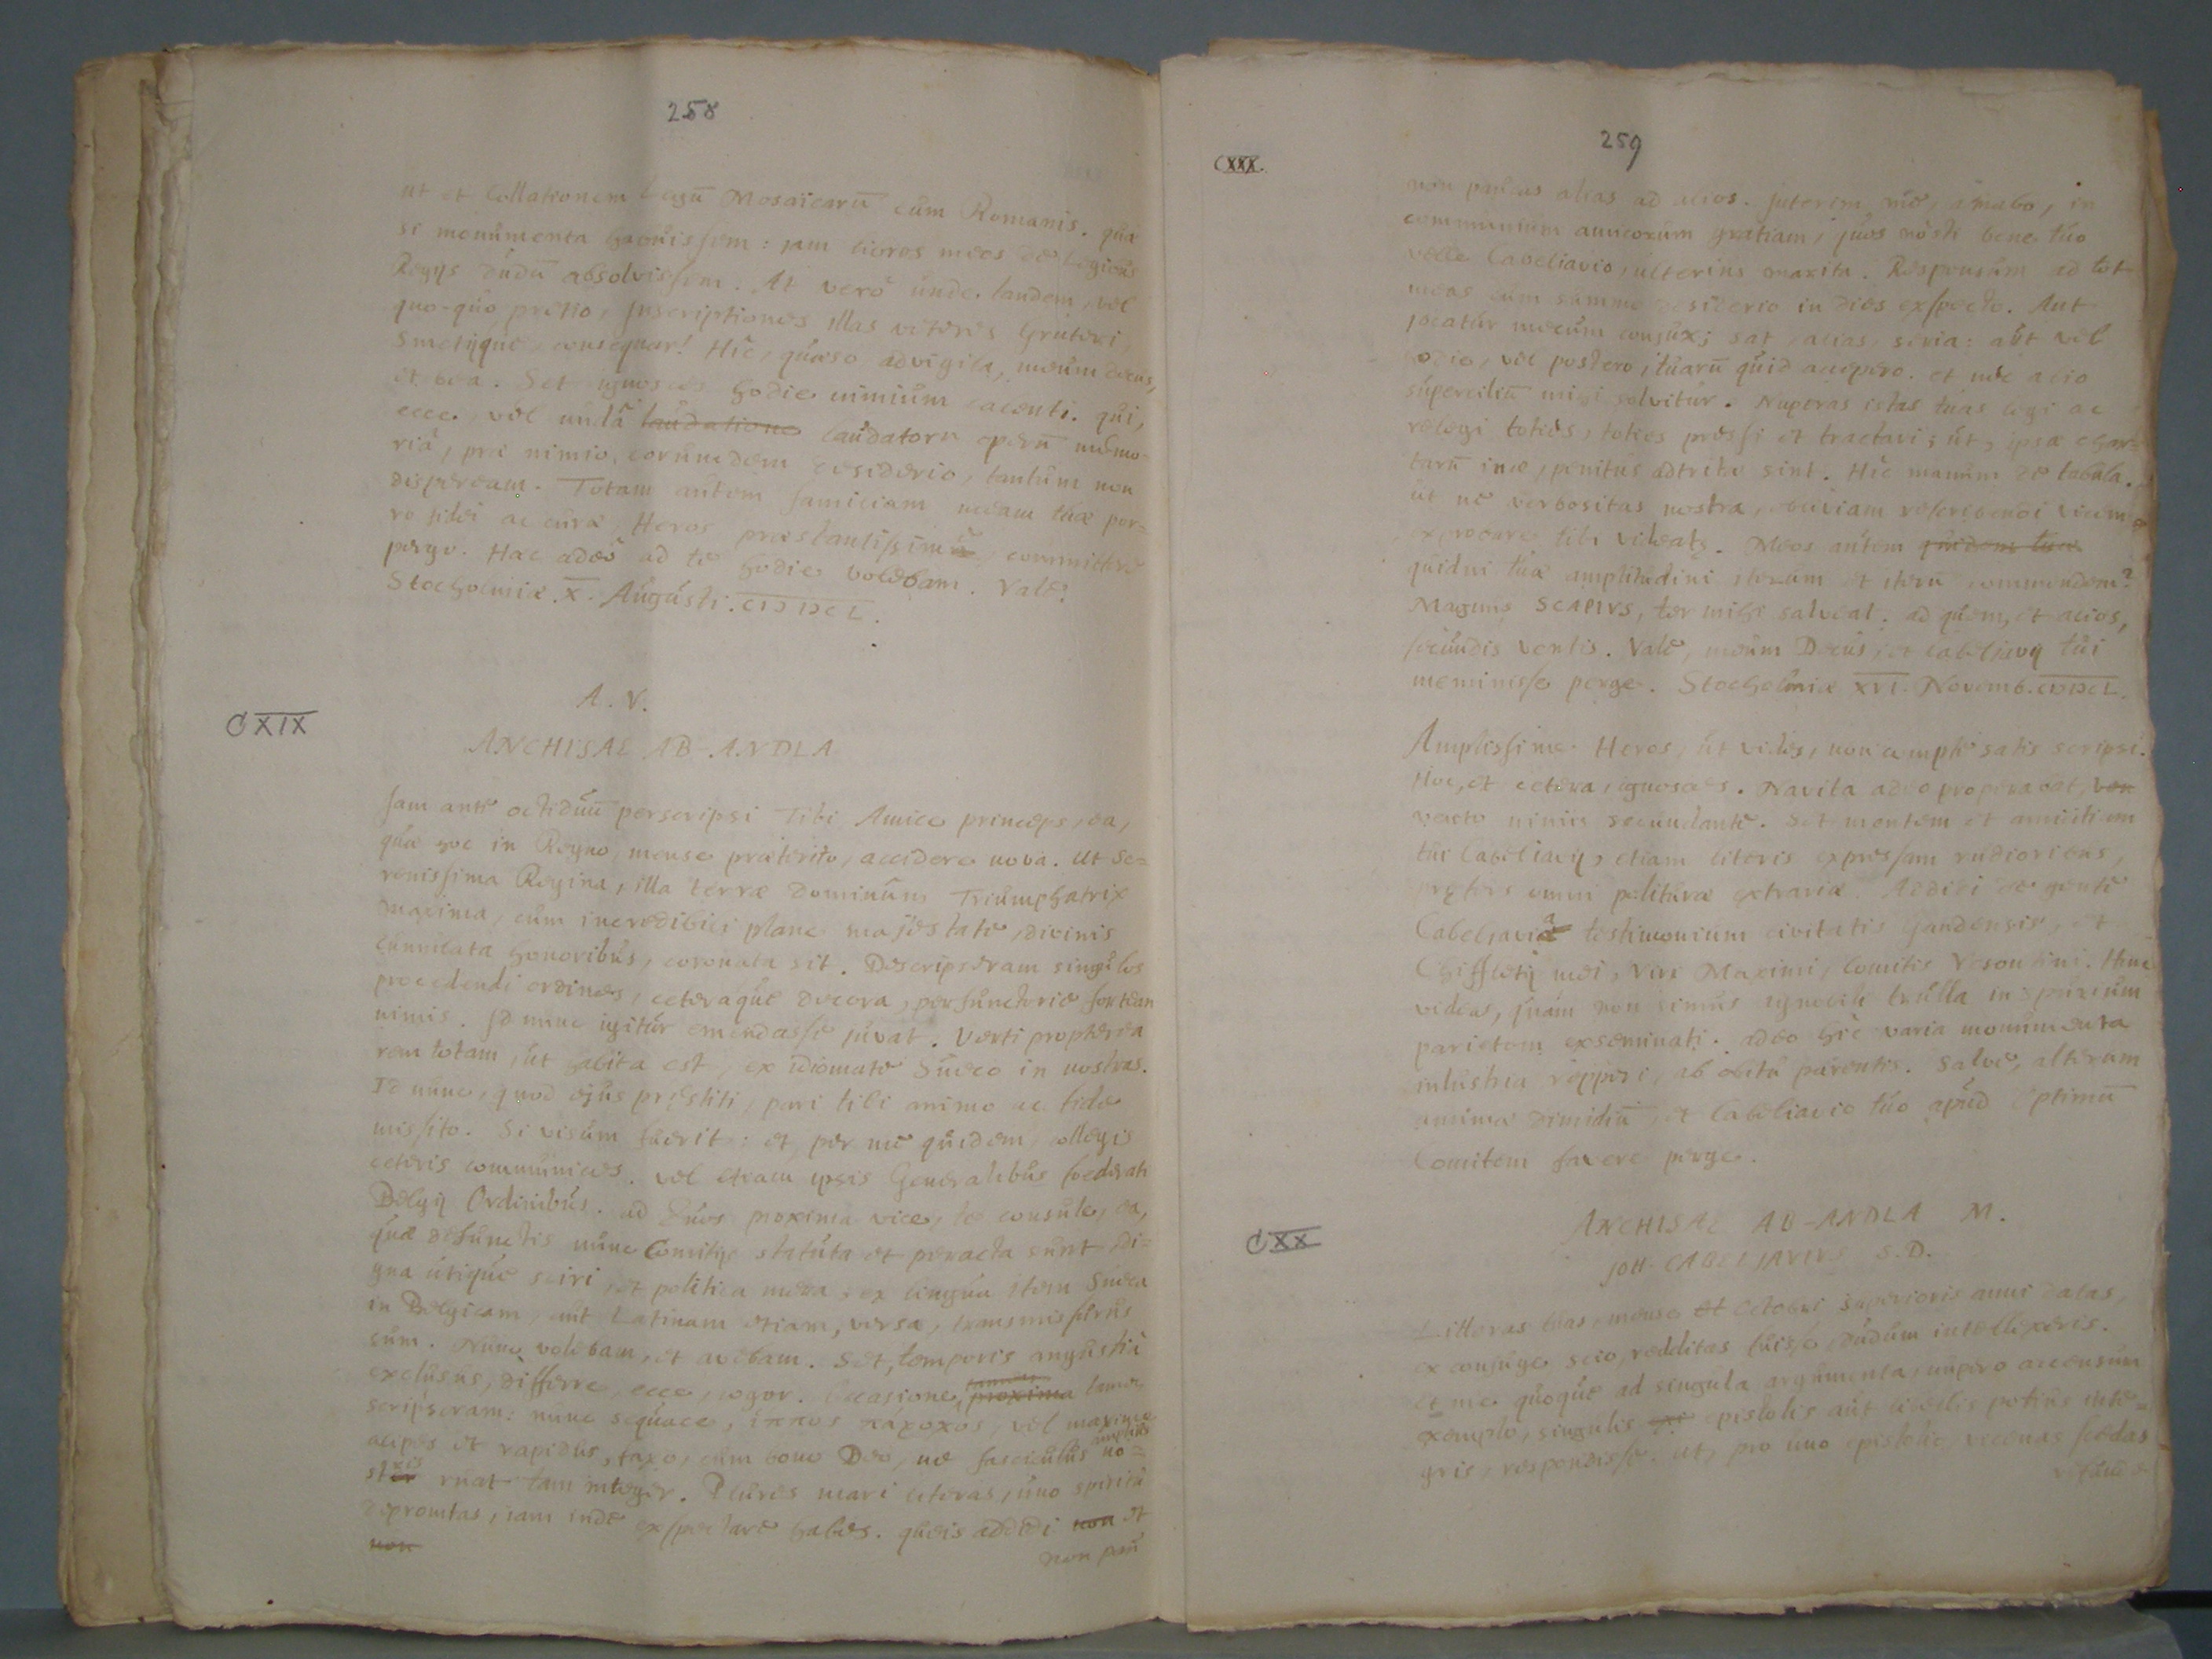 258
ut et Collationem Legū Mosaïcarū cum Romanis. quæ
si monumenta habuissem: jam libros meos de Legibus
Regijs dudū absolvissem. At verò unde tandem, vel
quo-quo pretio, Inscriptiones illas veteres Gruteri,
Smetijque consequar! Hîc, quæso advigila, meum decus,
et ora. Set ignosces hodie nimium. qui,
ecce, vel undâ laudatione laudatorū operū memo-
riâ, præ nimio eorumdem desiderio, tantum non
dispeream. Totam autem familiam meam tuæ por-
ro fidei ac curæ, Heros præstantissime, committere
pergo. Hæc adeò ad te hodie volebam. Vale.
Stocholmiæ. X. Augusti. CIↃ IↃC L.
A. V.
CXIX
ANCHISAE AB-ANDLA
Jam ante octiduū perscripsi Tibi Amice princeps, ea,
quæ hoc in Regno, mense præterito, accidere nova. Ut Se-
renissima Regina, illa terræ Dominûm Triumphatrix
maxima, cum incredibili plane majestate, divinis
cumulata honoribus, coronata sit. Descripseram singulos
procedendi ordines, ceteraque decora, perfunctorie fortean
nimis. Id nunc igitur emendasse juvat. Verti propterea
rem totam, ut habita est, ex idiomate Sueco in nostras.
Id nunc, quod ejus præstiti, pari tibi animo ac fide
missito. Si visum fuerit: et, per me quidem, collegis
ceteris communices. vel etiam ipsis Generalibus foederati
Belgij Ordinibus. ad quos proxima vice, te consule, ea,
quæ defunctis nunc Comitijs statuta et peracta sunt di-
gna utique sciri, et politica mera, ex lingua item Sueca
in Belgicam, aut Latinam etiam, versa, transmissurus
sum. Nunc volebam, et avebam. Set, temporis angustiâ
exclusus, differre, ecce, cogor. Occasione, proxima
scripseram: nunc sequace, ἱππος παροχος, vel maxime
alipes et rapidus, faxo, cum bono Deo, ne fasciculus amplius no-
ster ruat tam integer. Plures mari literas, uno spiritu
depromtas, jam inde exspectare habes. queis addidi non et
non
non pau
259
CXXX.
non paucas alias ad alios. Interim me, amabo, in
communium amicorum gratiam, quos nosti bene tuo
velle Cabeliavio, ulterius maxita. Responsum ad tot
meas cum summo desiderio in dies exspecto. Aut
jocatur mecum conjux; sat, alias, seria: aut vel
hodie, vel postero, tuarū quid accipero. et nec alio
superciliū mihi solvitur. Nuperas istas tuas legi ac
relegi toties, toties pressi et tractavi; ut, ipsæ char-
tarū inæ, penitus adtritæ sint. Hîc manum de tabula.
ut ne verbositas nostra, obviam rescribendi vicem
exprobrare tibi videatr. Meos autem quidem tuæ
quidni tuæ amplitudini iterum et iterū commendem?
Magnus SCAPIVS, ter mihi salveat. ad quem, et alios,
secundis ventis. Vale, meum Decus, et Cabeljavij tui
meminisse perge. Stocholmiæ XVI. Novemb. CIↃ IↃC L.
Amplissime Heros, ut vides, non ample satis scripsi.
Hoc, et cetera, ignosces. Navita adeo properabat, ven
vento nimis secundante. Set mentem et amicitiam
tui Cabeliavij, etiam literis expressam rudioribus,
præfers omni politura extraria. Addidi de gente
Cabeljaviâ testimonium civitatis Gandensis, et
Chiffletij mei, Viri Maximi, Comitis Vesontini. Hinc
videas, quàm non simus ignobili trulla in spurium
parietem exseminati. adeo hîc varia monumenta
inlustria repperi, ab obitu parentis. Salve, alterum
animæ dimidiū, et Cabeliavio tuo apud Optimū
Comitem favere perge.
CXX
ANCHISAE AB-ANDLA M.
JOH. CABELJAVIVS S.D.
Litteras tuas, mense Octobri superioris anni datas,
ex conjuge scio, redditas fuisse, dudum intellexeris.
et me quoque ad singula argumenta, nupero accensum
exemplo, singulis epistolis aut libellis potius inte-
gris, respondisse. ut, pro uno epistolio, vicenas schedas